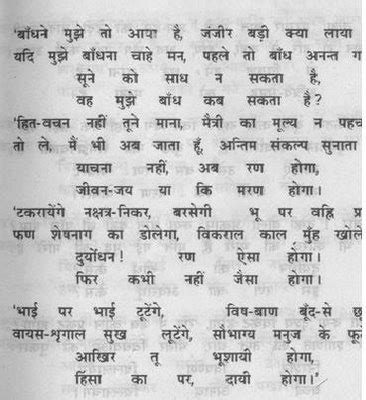 'बाँधने मुझे तो आया है, जंजीर बड़ी क्या लाया
यदि मुझे बाँधना चाहे मन, पहले तो बाँध अनन्त ग
सूने को साध न सकता है,
वह मुझे बाँध कब सकता है?
'हित-वचन नहीं तूने माना, मैत्री का मूल्य न पहच
तो ले, मैं भी अब जाता हूँ, अन्तिम संकल्प सुनाता
याचना नहीं, अब रण होगा,
जीवन-जय या कि मरण होगा।
'टकरायेंगे नक्षत्र-निकर, बरसेगी भू पर वह्नि प्र
फण शेषनाग का डोलेगा, विकराल काल मुँह खोले
दुर्योधन! रण ऐसा होगा।
फिर कभी नहीं जैसा होगा।
'भाई पर भाई टूटेंगे, विष-बाण बूँद-से छ
वायस-श्रृगाल सुख लूटेंगे, सौभाग्य मनुज के फू
आखिर तू भूशायी होगा,
हिंसा का पर, दायी होगा।'